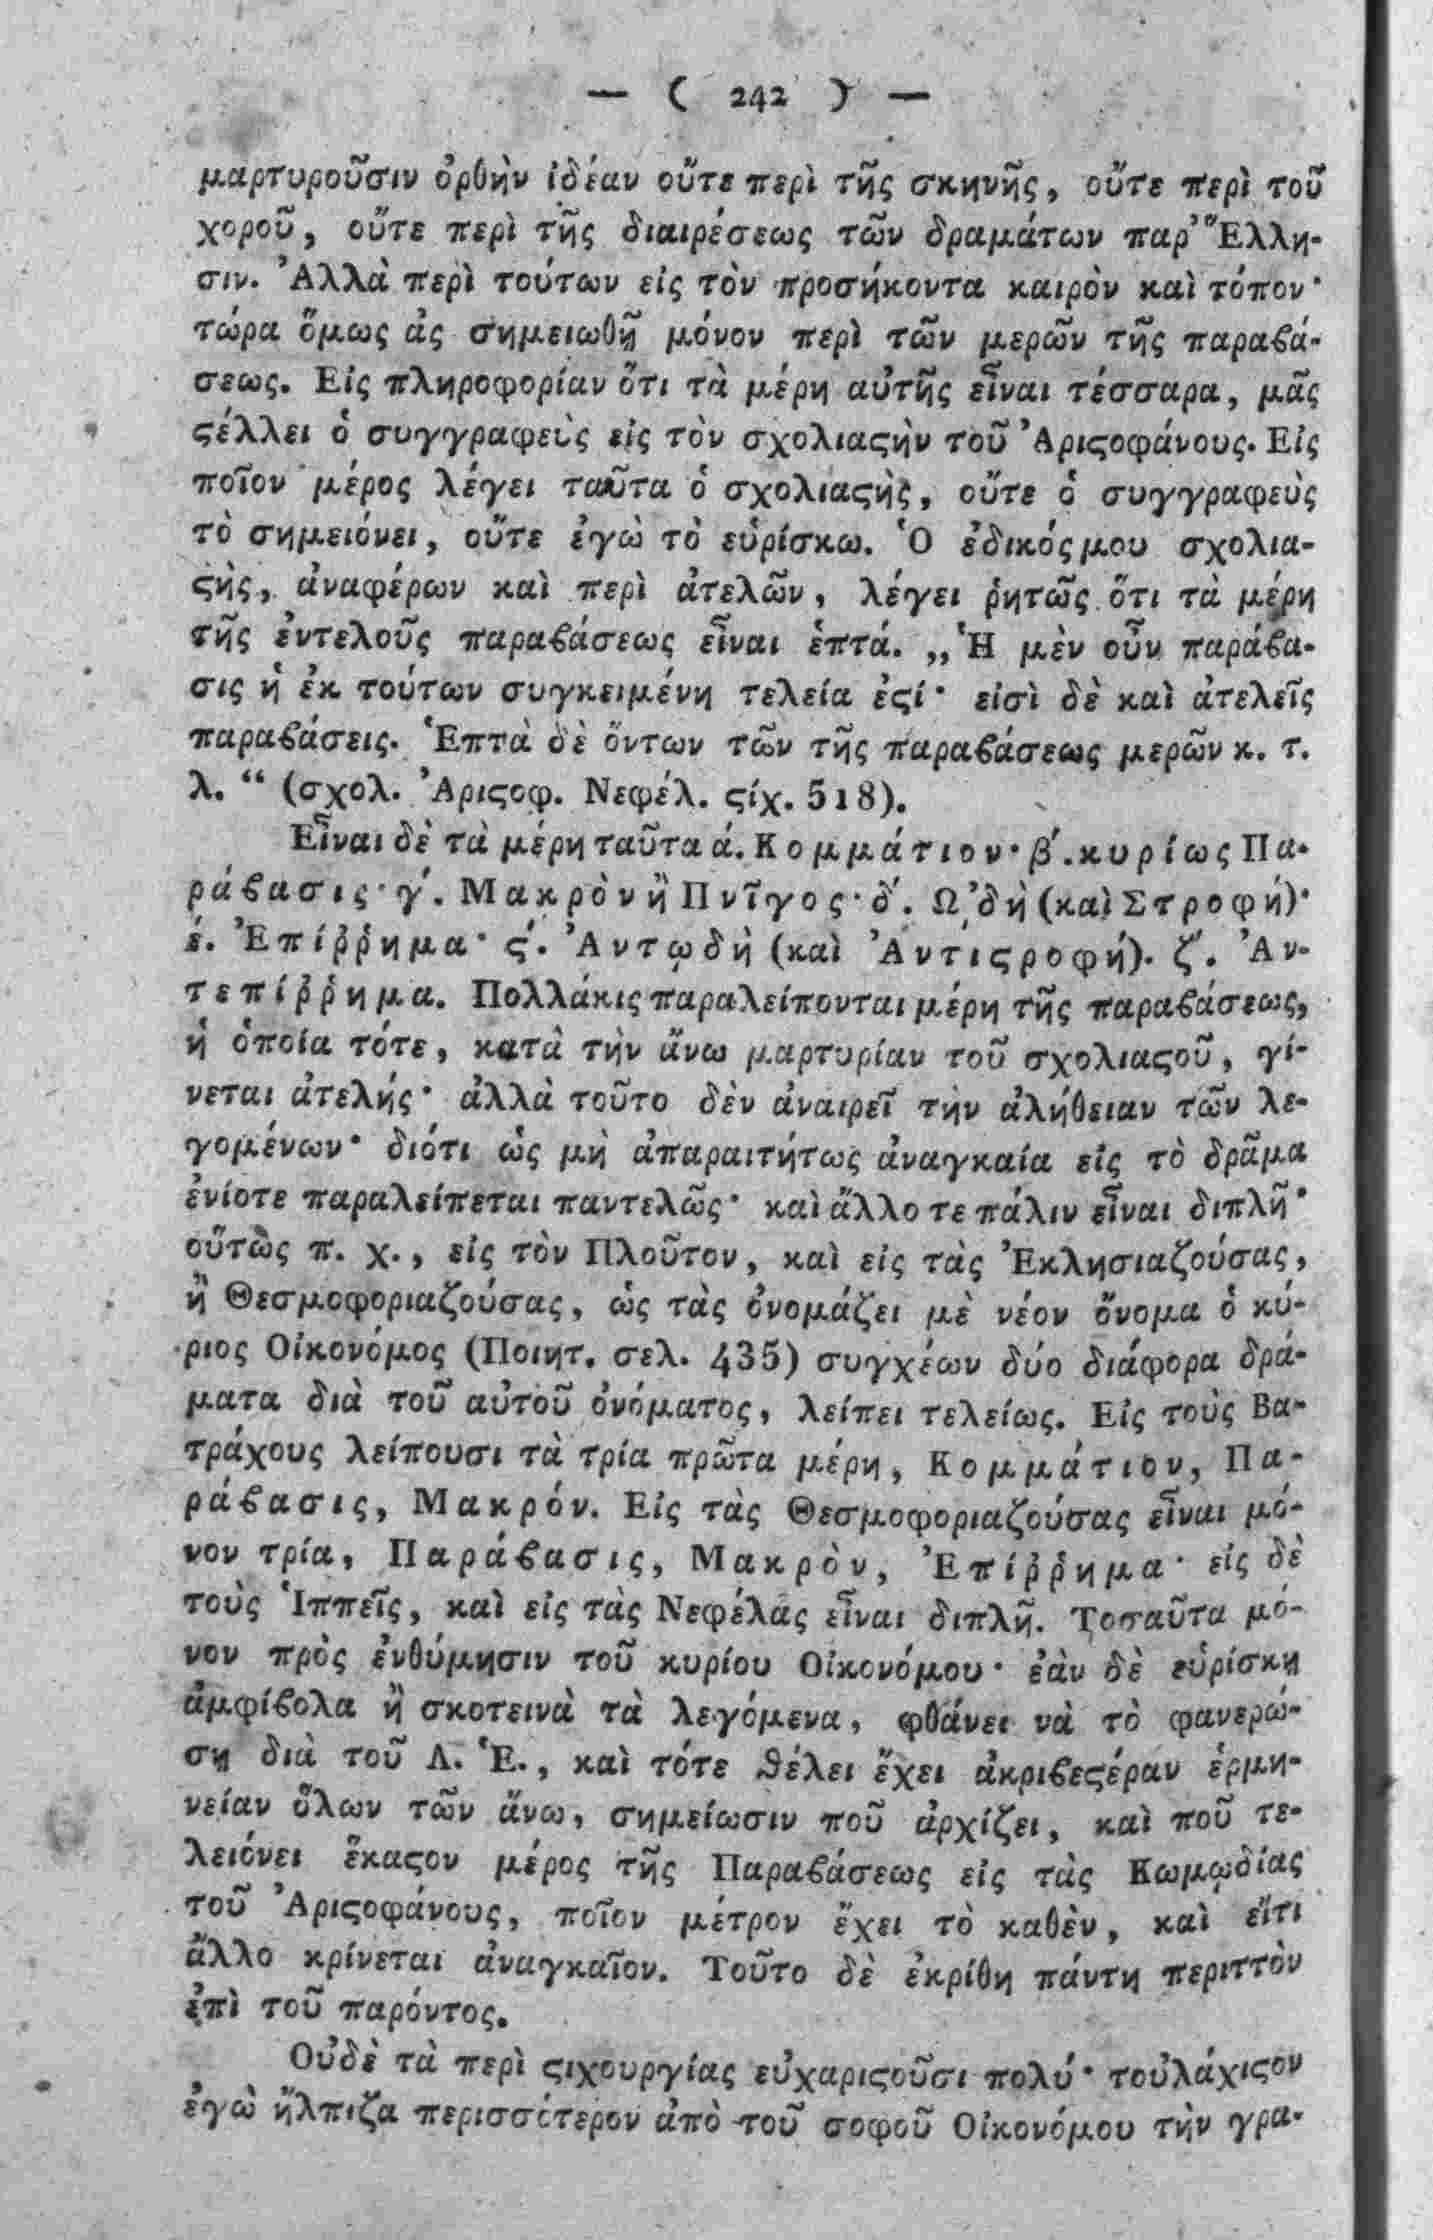 — ( 242 ) —
μαρτυροῦσιν ὀρθὴν ἰδέαν οὔτε περὶ τῆς σκηνῆς, οὔτε περὶ τοῦ
χοροῦ, οὔτε περὶ τῆς διαιρέσεως τῶν δραμάτων παρ' Ἕλλη-
σιν. Ἀλλὰ περὶ τούτων εἰς τὸν προσήκοντα καιρὸν καὶ τόπον·
τώρα ὅμως ἂς σημειωθῇ μόνον περὶ τῶν μερῶν τῆς παραβά-
σεως. Εἰς πληροφορίαν ὅτι τὰ μέρη αὐτῆς εἶναι τέσσαρα, μᾶς
ϛέλλει ὁ συγγραφεὺς εἰς τὸν σχολιαϛὴν τοῦ Ἀριϛοφάνους. Εἰς
ποῖον μέρος λέγει ταῦτα ὁ σχολιαϛὴς, οὔτε ὁ συγγραφεὺς
τὸ σημειόνει, οὔτε ἐγὼ τὸ εὑρίσκω. Ὁ ἐδικός μου σχολια-
ϛὴς, ἀναφέρων καὶ περὶ ἀτελῶν, λέγει ῥητῶς ὅτι τὰ μέρη
τῆς ἐντελοῦς παραβάσεως εἶναι ἑπτά. „Ἡ μὲν οὖν παράβα-
σις ἡ ἐκ τούτων συγκειμένη τελεία ἐϛί· εἰσὶ δὲ καὶ ἀτελεῖς
παραβάσεις. Ἑπτὰ δὲ ὄντων τῶν τῆς παραβάσεως μερῶν κ. τ.
λ. “ (σχολ. Ἀριϛοφ. Νεφέλ. ϛίχ. 518).
Εἶναι δὲ τὰ μέρη ταῦτα ά. Κομμάτιον· β'. κυρίως Πα-
ράβασις· γ'. Μακρὸν ἢ Πνῖγος· δ'. Ὠδὴ (καὶ Στροφή)·
έ. Ἐπίῤῥημα· ϛ'. Ἀντῳδὴ (καὶ Ἀντιϛροφή). ζ'. Ἀν-
τεπίῤῥημα. Πολλάκις παραλείπονται μέρη τῆς παραβάσεως,
ἡ ὁποία τότε, κατὰ τὴν ἄνω μαρτυρίαν τοῦ σχολιαϛοῦ, γί-
νεται ἀτελής· ἀλλὰ τοῦτο δὲν ἀναιρεῖ τὴν ἀλήθειαν τῶν λε-
γομένων· διότι ὡς μὴ ἀπαραιτήτως ἀναγκαία εἰς τὸ δρᾶμα
ἐνίοτε παραλείπεται παντελῶς· καὶ ἄλλο τε πάλιν εἶναι διπλῆ·
οὕτως π. χ., εἰς τὸν Πλοῦτον, καὶ εἰς τὰς Ἐκλησιαζούσας,
ἢ Θεσμοφοριαζούσας, ὡς τὰς ὀνομάζει μὲ νέον ὄνομα ὁ κύ-
ριος Οἰκονόμος (Ποιητ. σελ. 435) συγχέων δύο διάφορα δρά-
ματα διὰ τοῦ αὐτοῦ ὀνόματος, λείπει τελείως. Εἰς τοὺς Βα-
τράχους λείπουσι τὰ τρία πρῶτα μέρη, Κομμάτιον, Πα-
ράβασις, Μακρόν. Εἰς τὰς Θεσμοφοριαζούσας εἶναι μό-
νον τρία, Παράβασις, Μακρὸν, Ἐπίῤῥημα· εἰς δὲ
τοὺς Ἱππεῖς, καὶ εἰς τὰς Νεφέλας εἶναι διπλῆ. Τοσαῦτα μό-
νον πρὸς ἐνθύμησιν τοῦ κυρίου Οἰκονόμου· ἐὰν δὲ εὑρίσκῃ
ἀμφίβολα ἢ σκοτεινὰ τὰ λεγόμενα, φθάνει νὰ τὸ φανερώ-
σῃ διὰ τοῦ Λ. Ἑ., καὶ τότε θέλει ἔχει ἀκριβεϛέραν ἑρμη-
νείαν ὅλων τῶν ἄνω, σημείωσιν ποῦ ἀρχίζει, καὶ ποῦ τε-
λειόνει ἕκαϛον μέρος τῆς Παραβάσεως εἰς τὰς Κωμῳδίας
τοῦ Ἀριϛοφάνους, ποῖον μέτρον ἔχει τὸ καθὲν, καὶ εἴτι
ἄλλο κρίνεται ἀναγκαῖον. Τοῦτο δὲ ἐκρίθη πάντη περιττὸν
ἐπὶ τοῦ παρόντος.
Οὐδὲ τὰ περὶ ϛιχουργίας εὐχαριϛοῦσι πολύ· τοὐλάχιϛον
ἐγὼ ἤλπιζα περισσότερον ἀπὸ τοῦ σοφοῦ Οἰκονόμου τὴν γρα-